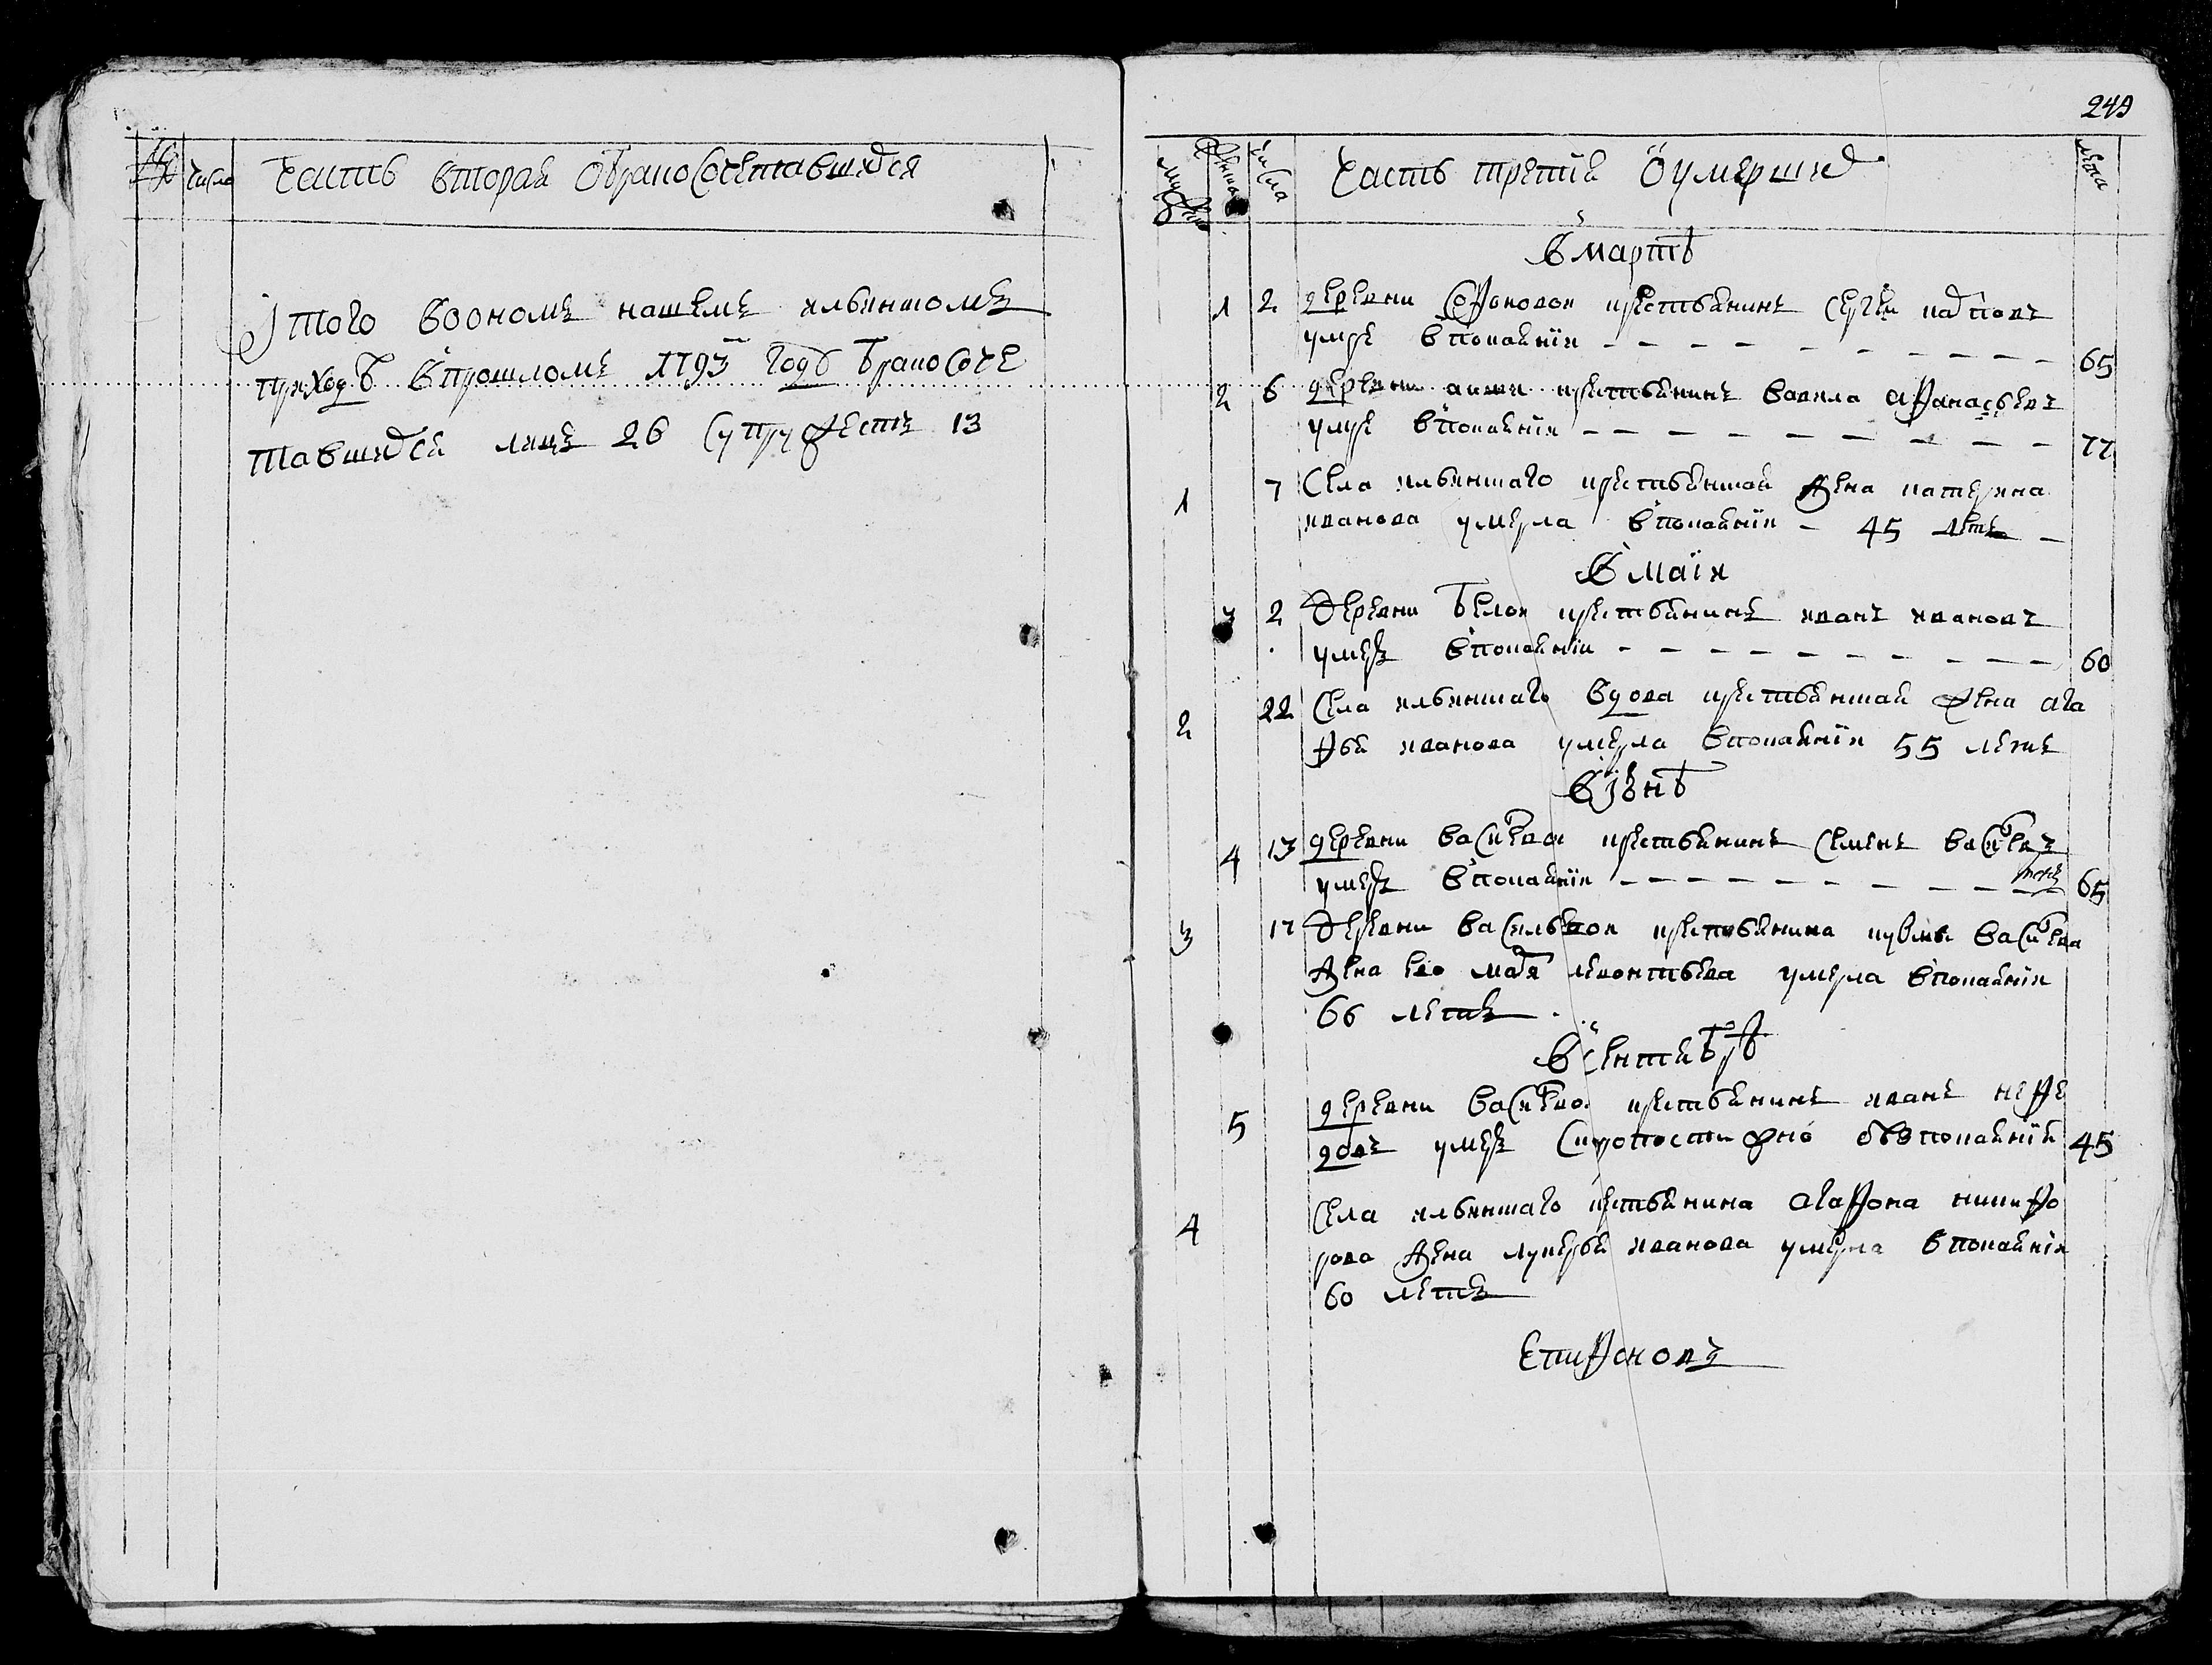 № число Часть вторая о бракосочетавшихся
Итого во ономъ нашемъ ильинскомъ
приходѣ в прошломъ 1793 годѣ бракосоче
тавшихся лицъ 26 супружествъ 13
249
числа Часть третiя о умершихъ лѣта
в мартѣ
1 2 деревни Софоновой крестьянинъ Сергеи
умре в покаянiи 65
2 6 деревни крестьянинъ вавила афанасьевъ
умре в покаянiи 77
1 7 Села ильинскаго крестьянская жена катерина
иванова умерла в покаянiи 45 летъ
в маiи
3 2 Деревни белои крестьянинъ иванъ ивановъ
умеръ в покаянiи 60
2 22 Села ильинскаго вдова крестьянская жена ага
фья иванова умерла в покаянiи 55 летъ
в iюнѣ
4 13 деревни васильевои крестьянинъ Семенъ васильевъ
умеръ в покаянiи 65
3 17 Деревни васильевои крестьянина кузмы васильева
жена ево леонтьева умерла в покаянiи
66 летъ
в сентябрѣ
5 деревни васильевои крестьянинъ иванъ нефе
довъ умеръ скоропостижно без покаянiя 45
4 Села ильинскаго крестьянина агафона никифо
рова жена лукерья иванова умерла в покаянiи
60 летъ
Епифановъ